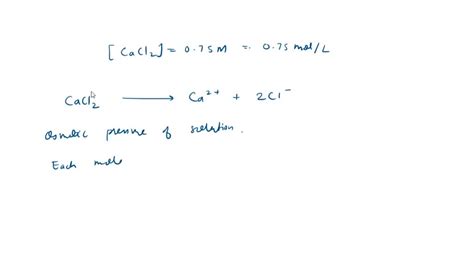 [CaCl₂] = 0.75M = 0.75 mol/L
CaCl₂ ⟶ Ca²⁺ + 2Cl⁻
Osmotic pressure of solution.
Each mole